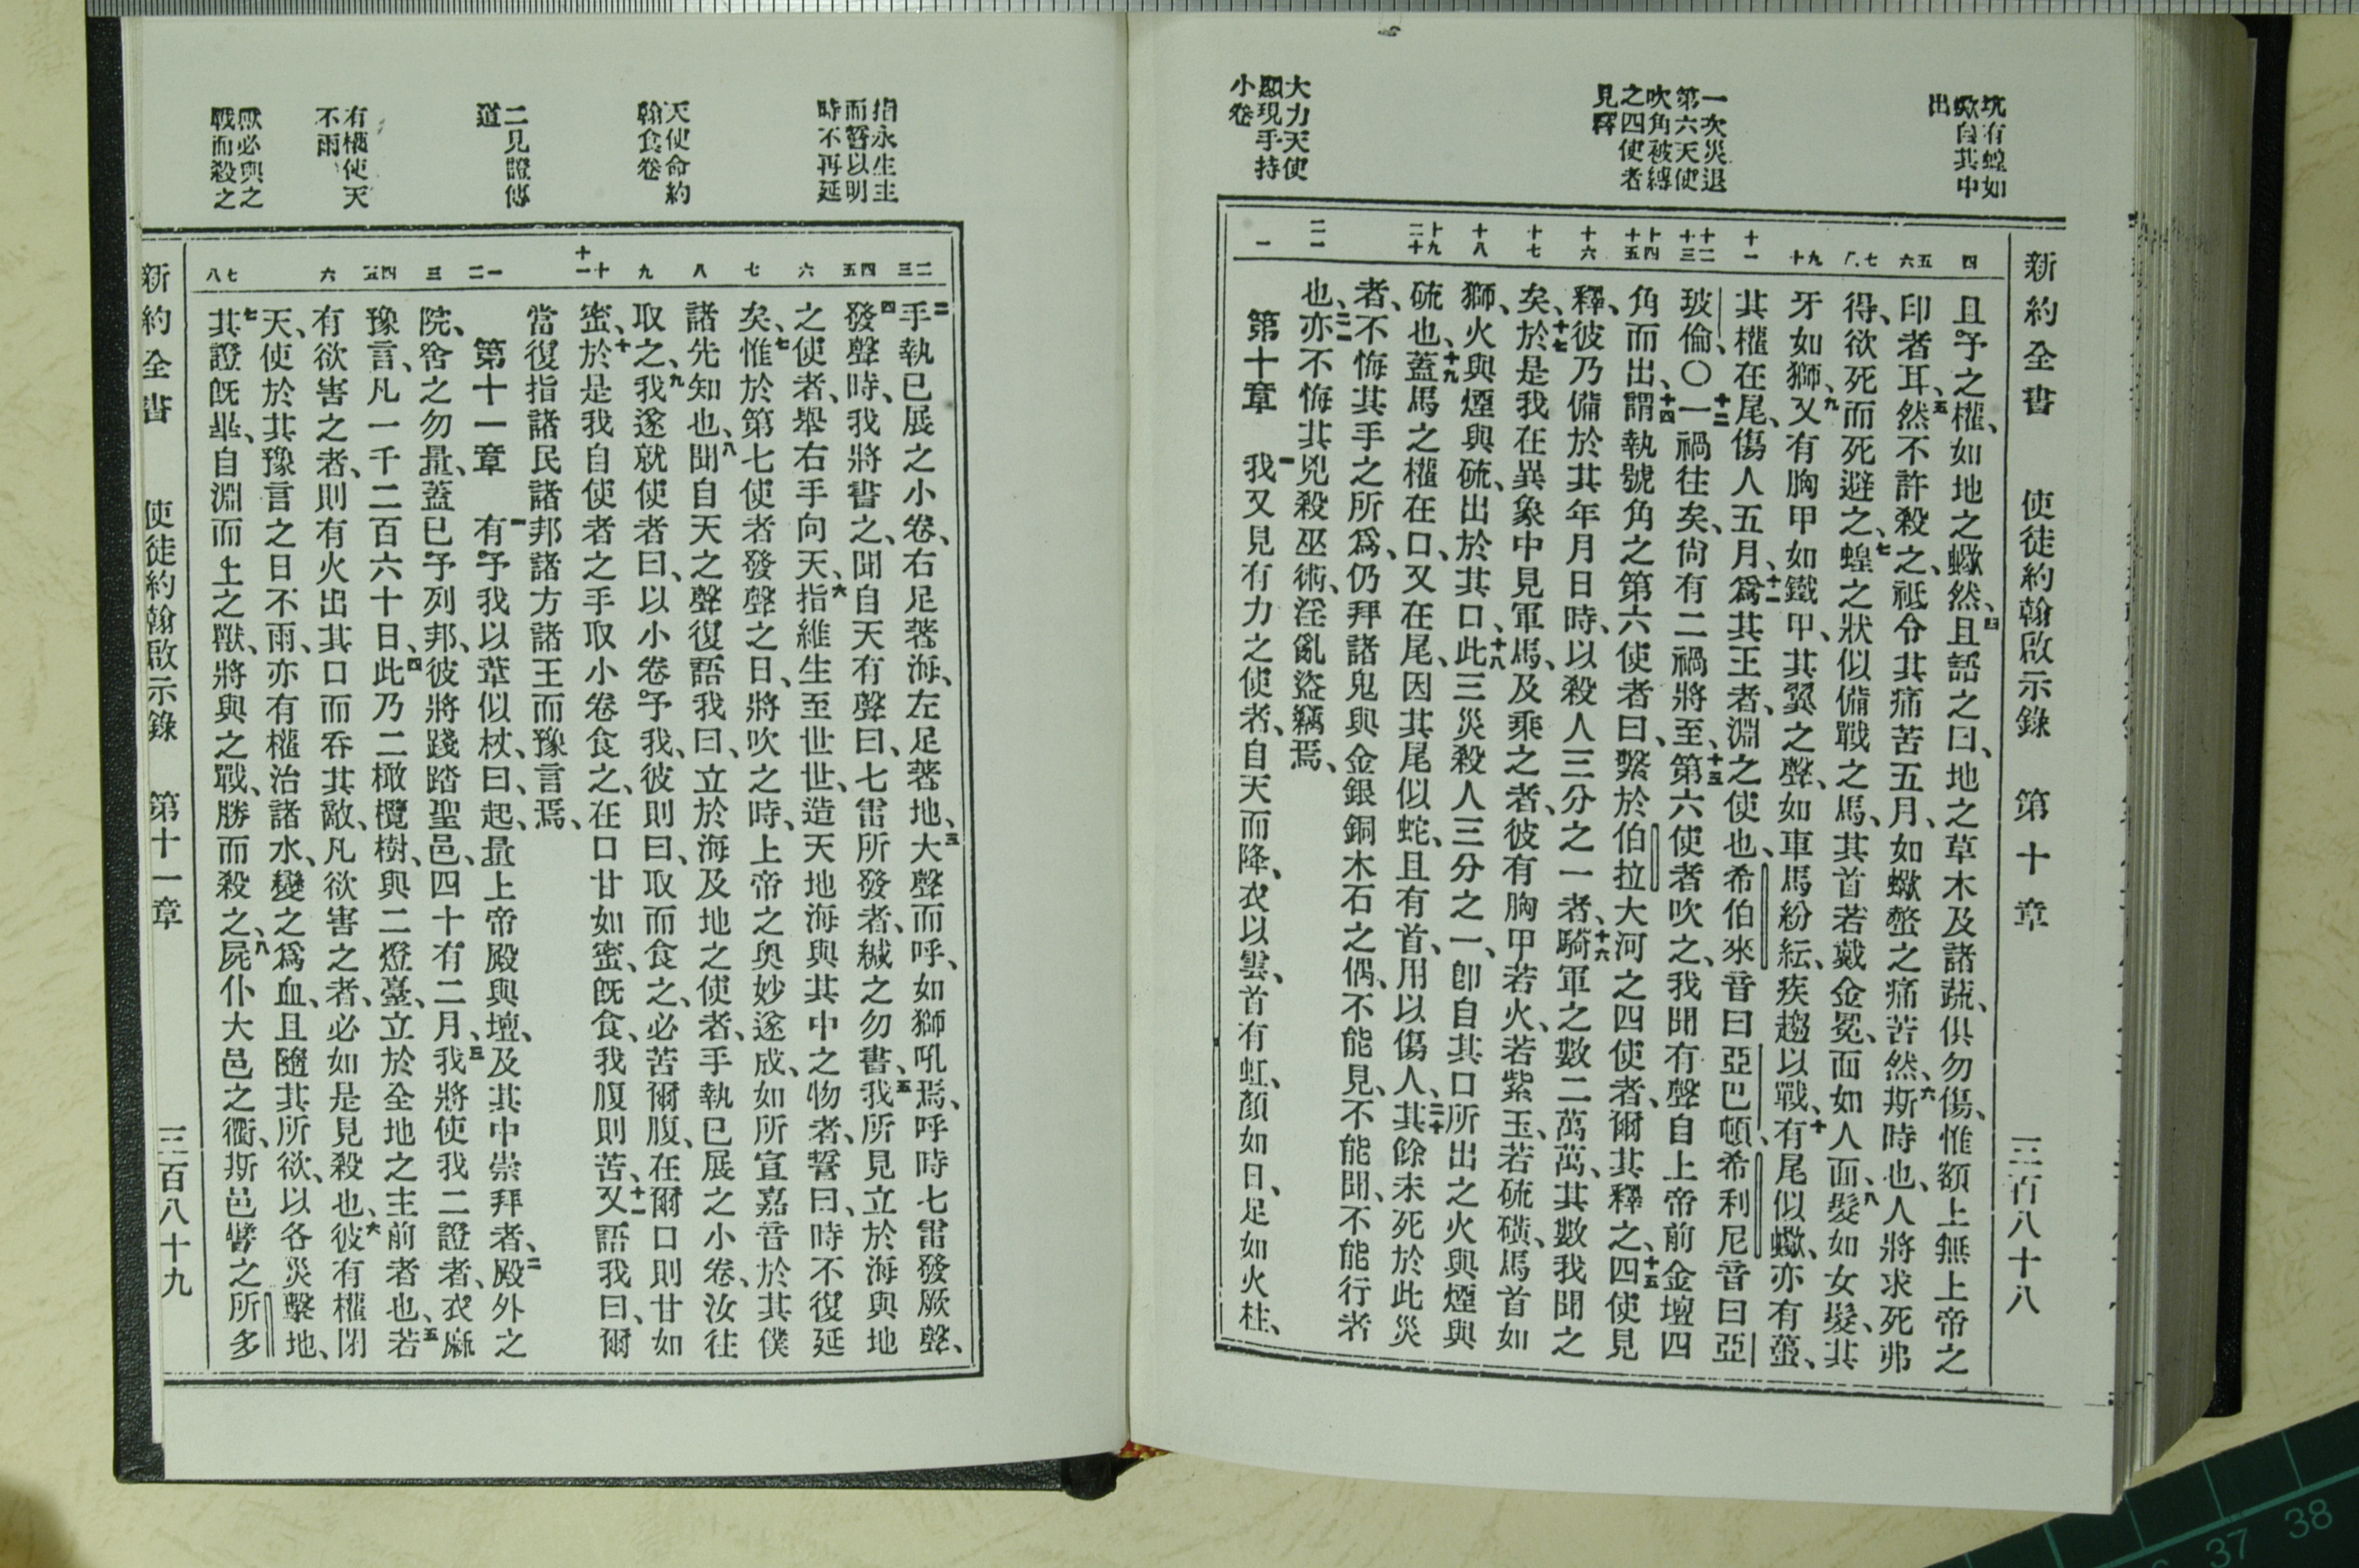 新約全書 使徒約翰啟示錄 第十章 三百八十八
坑有蝗如
蠍自其中
出
一次災退
第六天使
吹角被縛
之四使者
見釋
大力天使
顯現手持
小卷
四
五六
七八
九十
十一
十二十三
十四十五
十六
十七
十八
十九二十
二一
一
且予之權、如地之蠍然、四且語之曰、地之草木及諸蔬、俱勿傷、惟額上無上帝之
印者耳、五然不許殺之、祗令其痛苦五月、如蠍螫之痛苦然、六斯時也、人將求死弗
得、欲死而死避之、七蝗之狀似備戰之馬、其首若戴金冕、面如人面、八髮如女髮、其
牙如獅、九又有胸甲如鐵甲、其翼之聲、如車馬紛紜、疾趨以戰、十有尾似蠍、亦有蠆、
其權在尾、傷人五月、十一爲其王者、淵之使也、希伯來音曰亞巴頓、希利尼音曰亞
玻倫、〇十二一禍往矣、尙有二禍將至、十三第六使者吹之、我聞有聲自上帝前金壇四
角而出、十四謂執號角之第六使者曰、繫於伯拉大河之四使者、爾其釋之、十五四使見
釋、彼乃備於其年月日時、以殺人三分之一者、十六騎軍之數二萬萬、其數我聞之
矣、十七於是我在異象中見軍馬、及乘之者、彼有胸甲若火、若紫玉、若硫磺、馬首如
獅、火與煙與硫、出於其口、十八此三災殺人三分之一、卽自其口所出之火與煙與
硫也、十九蓋馬之權在口、又在尾、因其尾似蛇、且有首、用以傷人、二十其餘未死於此災
者、不悔其手之所爲、仍拜諸鬼與金銀銅木石之偶、不能見、不能聞、不能行者
也、二一亦不悔其兇殺巫術、淫亂盜竊焉、
第十章 一我又見有力之使者、自天而降、衣以雲、首有虹、顏如日、足如火柱、
指永生主
而誓以明
時不再延
天使命約
翰食卷
二見證傳
道
有權使天
不雨
獸必與之
戰而殺之
二三
四五
六
七
八
九
十十一
一二
三
四五
六
七八
二手執已展之小卷、右足著海、左足著地、三大聲而呼、如獅吼焉、呼時七雷發厥聲、
四發聲時、我將書之、聞自天有聲曰、七雷所發者、緘之勿書、五我所見立於海與地
之使者、舉右手向天、六指維生至世世、造天地海與其中之物者、誓曰、時不復延
矣、七惟於第七使者發聲之日、將吹之時、上帝之奧妙遂成、如所宣嘉音於其僕
諸先知也、八聞自天之聲復語我曰、立於海及地之使者、手執已展之小卷、汝往
取之、九我遂就使者曰、以小卷予我、彼則曰、取而食之、必苦爾腹、在爾口則甘如
蜜、十於是我自使者之手取小卷食之、在口甘如蜜、旣食、我腹則苦、十一又語我曰、爾
當復指諸民諸邦諸方諸王而豫言焉、
第十一章 一有予我以葦似杖、曰、起、量上帝殿與壇、及其中崇拜者、二殿外之
院、舍之勿量、蓋已予列邦、彼將踐踏聖邑、四十有二月、三我將使我二證者、衣麻
豫言、凡一千二百六十日、四此乃二橄欖樹、與二燈臺、立於全地之主前者也、五若
有欲害之者、則有火出其口而吞其敵、凡欲害之者、必如是見殺也、六彼有權閉
天、使於其豫言之日不雨、亦有權治諸水、變之爲血、且隨其所欲、以各災擊地、
七其證旣畢、自淵而上之獸、將與之戰、勝而殺之、八屍仆大邑之衢、斯邑譬之所多
新約全書 使徒約翰啟示錄 第十一章 三百八十九
37 38